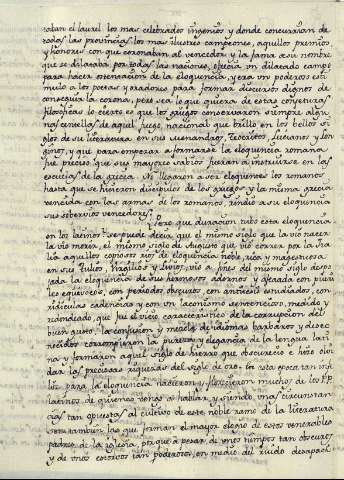 taban el laurel los mas celebrados ingenios y donde concurrian de
todas las provincias los mas ilustres campeones, aquellos premios
y honores con que coronaban al vencedor y la fama de su nombre
que se dilataba por todas las naciones, ofrecia un dilatado campo
para hacer ostentacion de la eloquencia, y era un poderoso esti-
mulo a los poetas y oradores para formar discursos dignos de
conseguir la corona, pero sea lo que quiera de estas conjeturas
filosoficas lo cierto es que los griegos conservaron siempre algu-
nas centellas de aquel fuego nacional que brilló en los bellos si-
glos de su literatura en sus Menandros, Teocritos, Lucianos y Lon-
ginos, y que para empezar a formarse la eloquencia romana
fue preciso que sus mayores sabios fueran a instruirse en las
escuelas de la grecia. No llegaron a ser eloquentes los romanos
hasta que se hicieron discipulos de los griegos y la misma grecia
vencida con las armas de los romanos rindió a su eloquencia
sus soberbios vencedores.
Pero que duracion tubo esta eloquencia
en los latinos? se puede decir que el mismo siglo que la vió nacer
la vio morir, el mismo siglo de Augusto que vió correr por la Ita-
lia aquellos copiosos rios de eloquencia noble, rica y magestuosa
en sus Tulios, Virgilios y Livios, vió a fines del mismo siglo despo-
jada la eloquencia de sus hermosos adornos y afeada con pueri-
les equivocos, con periodos obscuros, con antitesis estudiados, con
ridiculas cadencias y con un laconismo sentencioso, medido y
redondeado, que fue el vicio caracteristico de la corrupcion del
buen gusto, la confusion y mezcla de idiomas barbaros y desco-
nocidos corrompieron la pureza y elegancia de la lengua lati-
na y formaron aquel siglo de hierro que obscureció e hizo olvi-
dar las preciosas riquezas del siglo de oro. En esta epoca tan
para la eloquencia nacieron y florecieron muchos de los P.P.
latinos de quienes vamos a hablar, y siendo unas circunstan-
cias tan opuestas al cultivo de este noble ramo de la literatura
son tambien las que forman el mayor elogio de estos venerables
padres de la iglesia, porque a pesar de unos tiempos tan obscuros
y de unos estorvos tan poderosos, en medio del ruido desapaci-